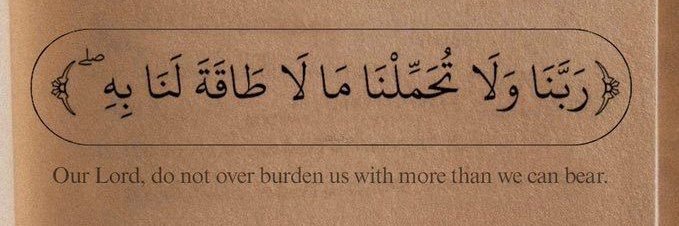 ﴿رَبَّنَا وَلَا تُحَمِّلْنَا مَا لَا طَاقَةَ لَنَا بِهِ ۖ﴾
Our Lord, do not over burden us with more than we can bear.